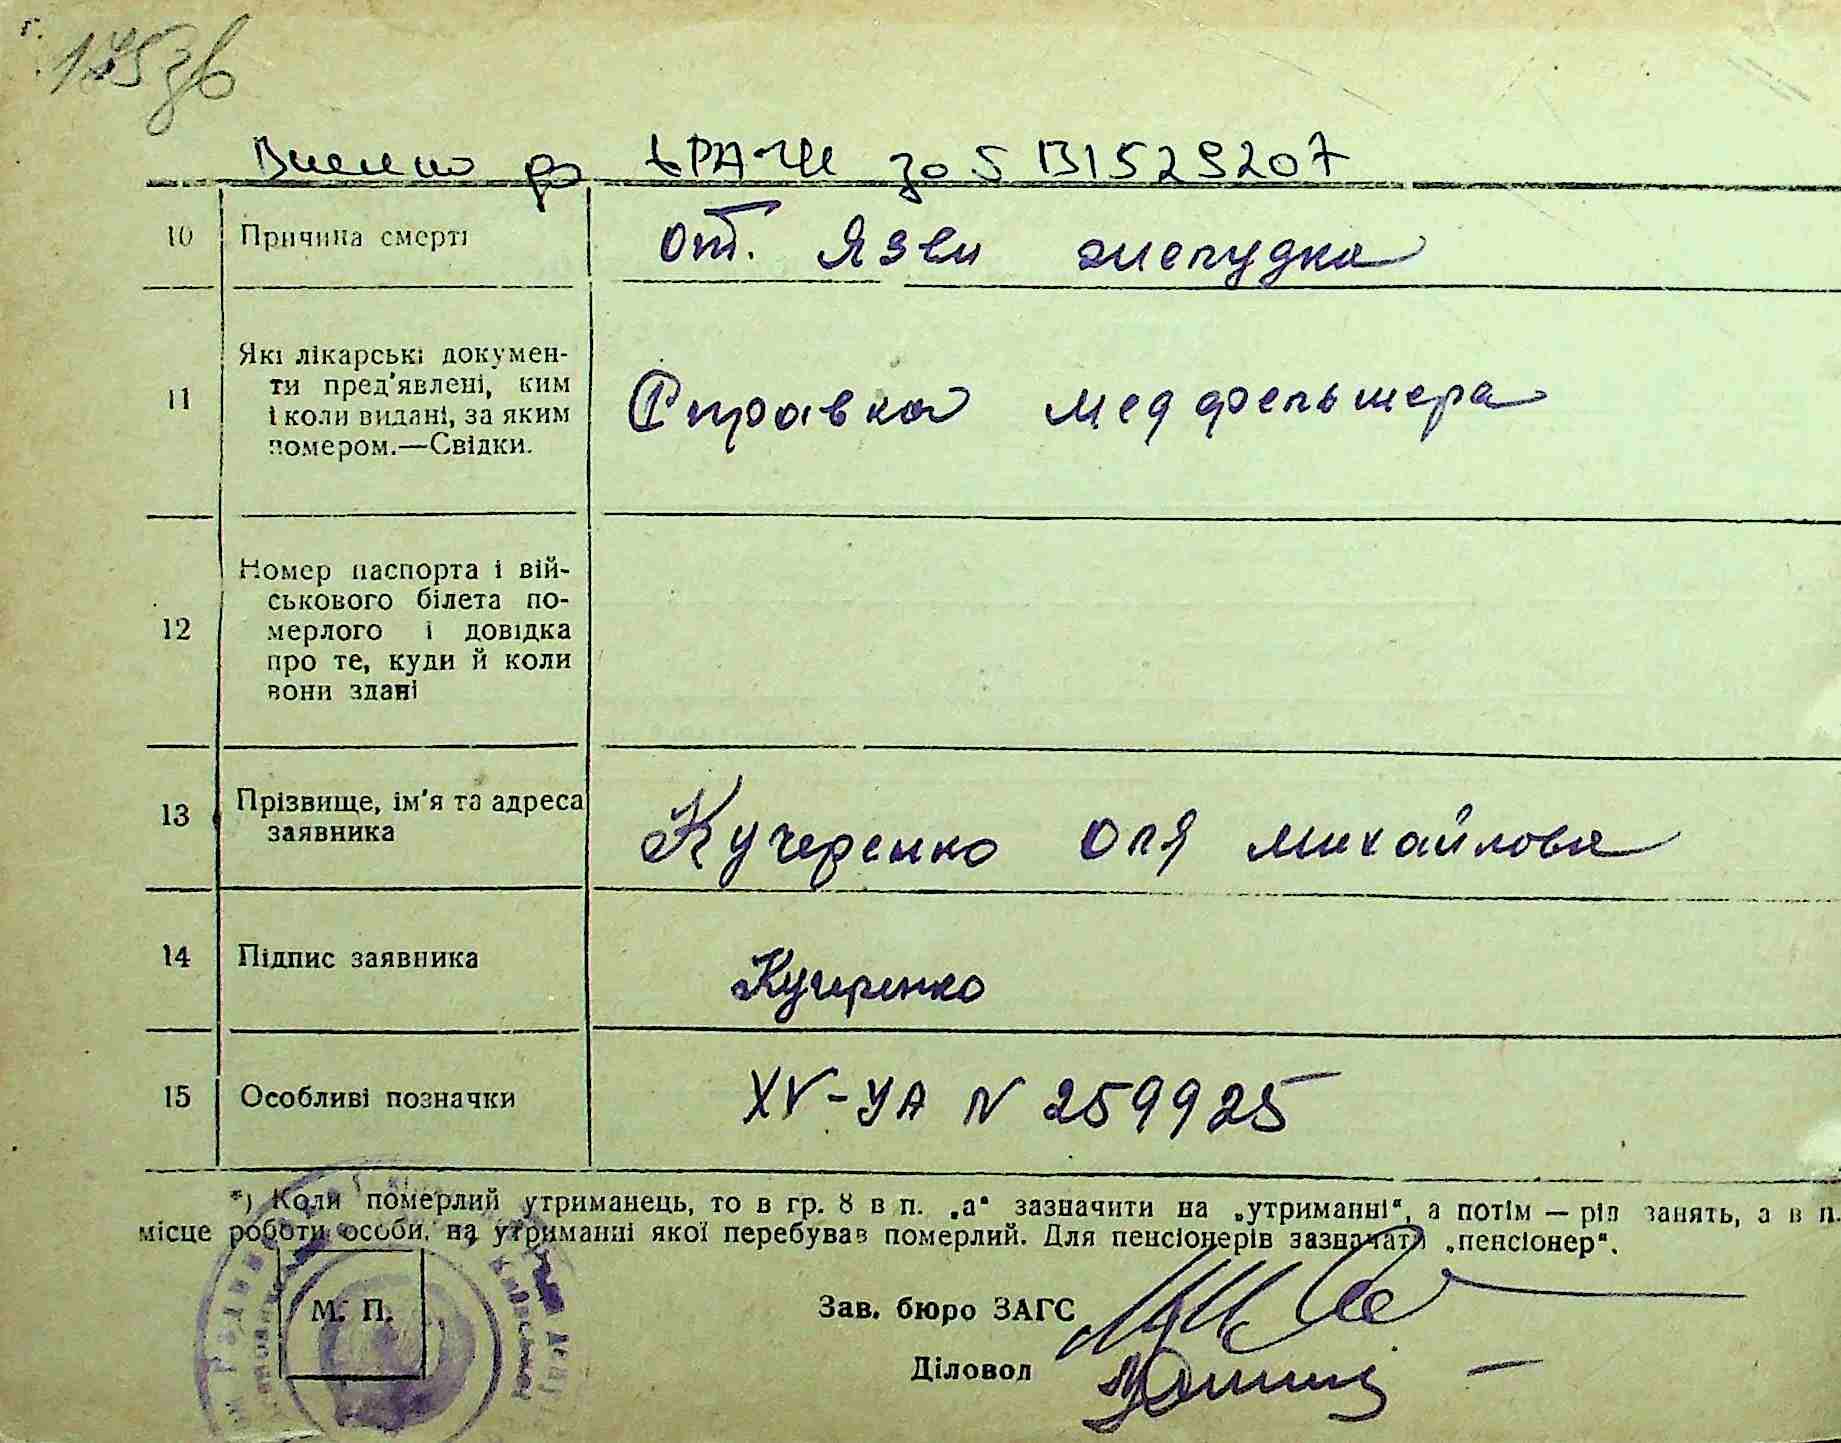 175зв
Внесено до ДРАЦС за § 1 В1529207
10 Причина смерті от. Язви желудка
11 Які лікарські докумен-
ти пред'явлені, ким
і коли видані, за яким
номером.—Свідки.
Справка медфельшера
12 Номер паспорта і вій-
ськового білета по-
мерлого і довідка
про те, куди й коли
вони здані
13 Прізвище, ім'я та адреса
заявника
Кучеренко Оля Михайловна
14 Підпис заявника Кучеренко
15 Особливі позначки XV-УА N 259925
*) Коли померлий утриманець, то в гр. 8 в п. „а“ зазначити на „утриманні“, а потім — рід занять, а в п.
місце роботи особи, на утриманні якої перебував померлий. Для пенсіонерів зазначати „пенсіонер“.
М. П.
Зав. бюро ЗАГС
Діловод